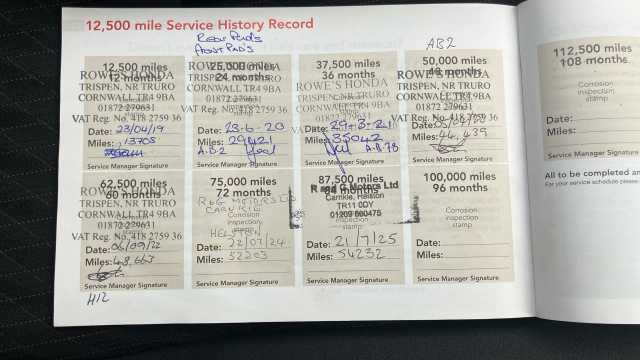 12,500 mile Service History Record
Rear Pads
Front Pads
AB2
12,500 miles
12 months
ROWE'S HONDA
TRISPEN, NR TRURO
CORNWALL TR4 9BA
01872 279631
VAT Reg. No. 418 2759 36
Date: 23/04/19
Miles: 13705
Service Manager Signature
25,000 miles
24 months
TRISPEN, NR TRURO
CORNWALL TR4 9BA
01872 279631
VAT Reg. No. 418 2759 36
Date: 23-6-20
Miles: 29421
Service Manager Signature
37,500 miles
36 months
ROWE'S HONDA
TRISPEN, NR TRURO
CORNWALL TR4 9BA
01872 279631
VAT Reg. No. 418 2759 36
Date: 29-3-21
Miles: 35042
Service Manager Signature
50,000 miles
48 months
ROWE'S HONDA
TRISPEN, NR TRURO
CORNWALL TR4 9BA
01872 279631
VAT Reg. No. 418 2759 36
Date:
Miles: 44,439
Service Manager Signature
112,500 miles
108 months
Corrosion
inspection
stamp
Date:
Miles:
Service Manager Signature
62,500 miles
60 months
ROWE'S HONDA
TRISPEN, NR TRURO
CORNWALL TR4 9BA
01872 279631
VAT Reg. No. 418 2759 36
Date: 06/09/22
Miles: 48,663
Service Manager Signature
H12
75,000 miles
72 months
R&G MOTORS LTD
CARNKIE
Corrosion
inspection
stamp
HELSTON
Date: 22/07/24
Miles: 52203
Service Manager Signature
87,500 miles
84 months
R and G Motors Ltd
Carnkie, Helston
TR11 0DY
01209 860475
stamp
Date: 21/7/25
Miles: 54232
Service Manager Signature
100,000 miles
96 months
Corrosion
inspection
stamp
Date:
Miles:
Service Manager Signature
All to be completed an
For your service schedule please